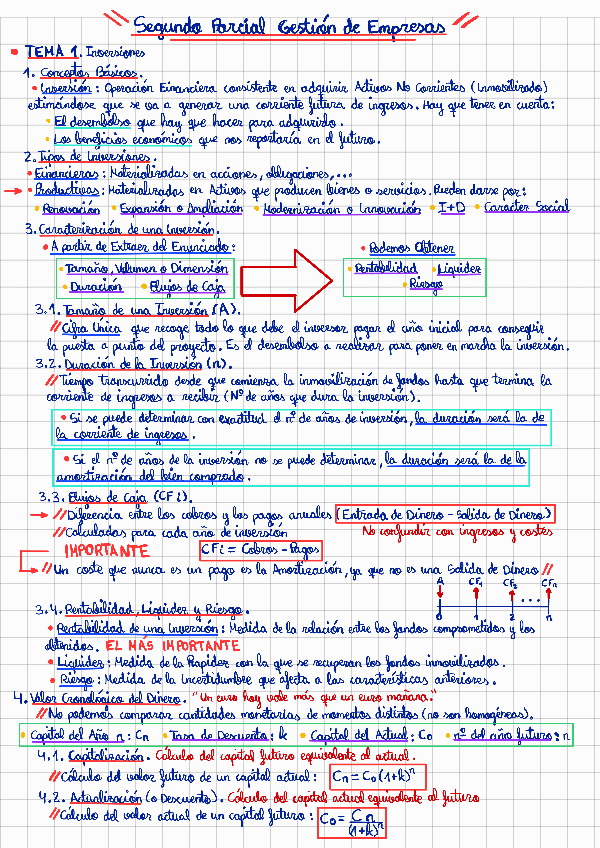 Segundo Parcial Gestión de Empresas
TEMA 1. Inversiones
1. Conceptos Básicos.
Inversión: Operación Financiera consistente en adquirir Activos No Corrientes (Inmovilizado)
estimándose que se va a generar una corriente futura de ingresos. Hay que tener en cuenta:
El desembolso que hay que hacer para adquirirlo.
Los beneficios económicos que nos reportaría en el futuro.
2. Tipos de Inversiones.
Financieras: Materializadas en acciones, obligaciones,...
Productivas: Materializadas en Activos que producen bienes o servicios. Pueden darse por:
Renovación Expansión o Ampliación Modernización o Innovación I+D Carácter Social
3. Caracterización de una Inversión.
A partir de Extraer del Enunciado: Podemos Obtener
Tamaño, Volumen o Dimensión Rentabilidad Liquidez
Duración Flujos de Caja Riesgo
3.1. Tamaño de una Inversión (A).
// Cifra Única que recoge todo lo que debe el inversor pagar el año inicial para conseguir
la puesta a punto del proyecto. Es el desembolso a realizar para poner en marcha la inversión.
3.2. Duración de la Inversión (n).
// Tiempo transcurrido desde que comienza la inmovilización de fondos hasta que termina la
corriente de ingresos a recibir (Nº de años que dura la inversión).
Si se puede determinar con exactitud el nº de años de inversión, la duración será la de
la corriente de ingresos.
Si el nº de años de la inversión no se puede determinar, la duración será la de la
amortización del bien comprado.
3.3. Flujos de Caja (CFi).
// Diferencia entre los cobros y los pagos anuales (Entrada de Dinero - Salida de Dinero)
// Calculadas para cada año de inversión No confundir con ingresos y costes
IMPORTANTE CFi = Cobros - Pagos
// Un coste que nunca es un pago es la Amortización, ya que no es una Salida de Dinero //
A CF1 CF2 CFn
...
0 1 2 n
3.4. Rentabilidad, Liquidez y Riesgo.
Rentabilidad de una Inversión: Medida de la relación entre los fondos comprometidos y los
obtenidos. EL MÁS IMPORTANTE
Liquidez: Medida de la Rapidez con la que se recuperan los fondos inmovilizados.
Riesgo: Medida de la incertidumbre que afecta a las características anteriores.
4. Valor Cronológico del Dinero. "Un euro hoy vale más que un euro mañana."
// No podemos comparar cantidades monetarias de momentos distintos (no son homogéneas).
Capital del Año n: Cn Tasa de Descuento: k Capital del Actual: C0 nº del año futuro: n
4.1. Capitalización. Cálculo del capital futuro equivalente al actual.
// Cálculo del valor futuro de un capital actual: Cn = C0 (1+k)^n
4.2. Actualización (o Descuento). Cálculo del capital actual equivalente al futuro
// Cálculo del valor actual de un capital futuro: C0 = Cn / (1+k)^n